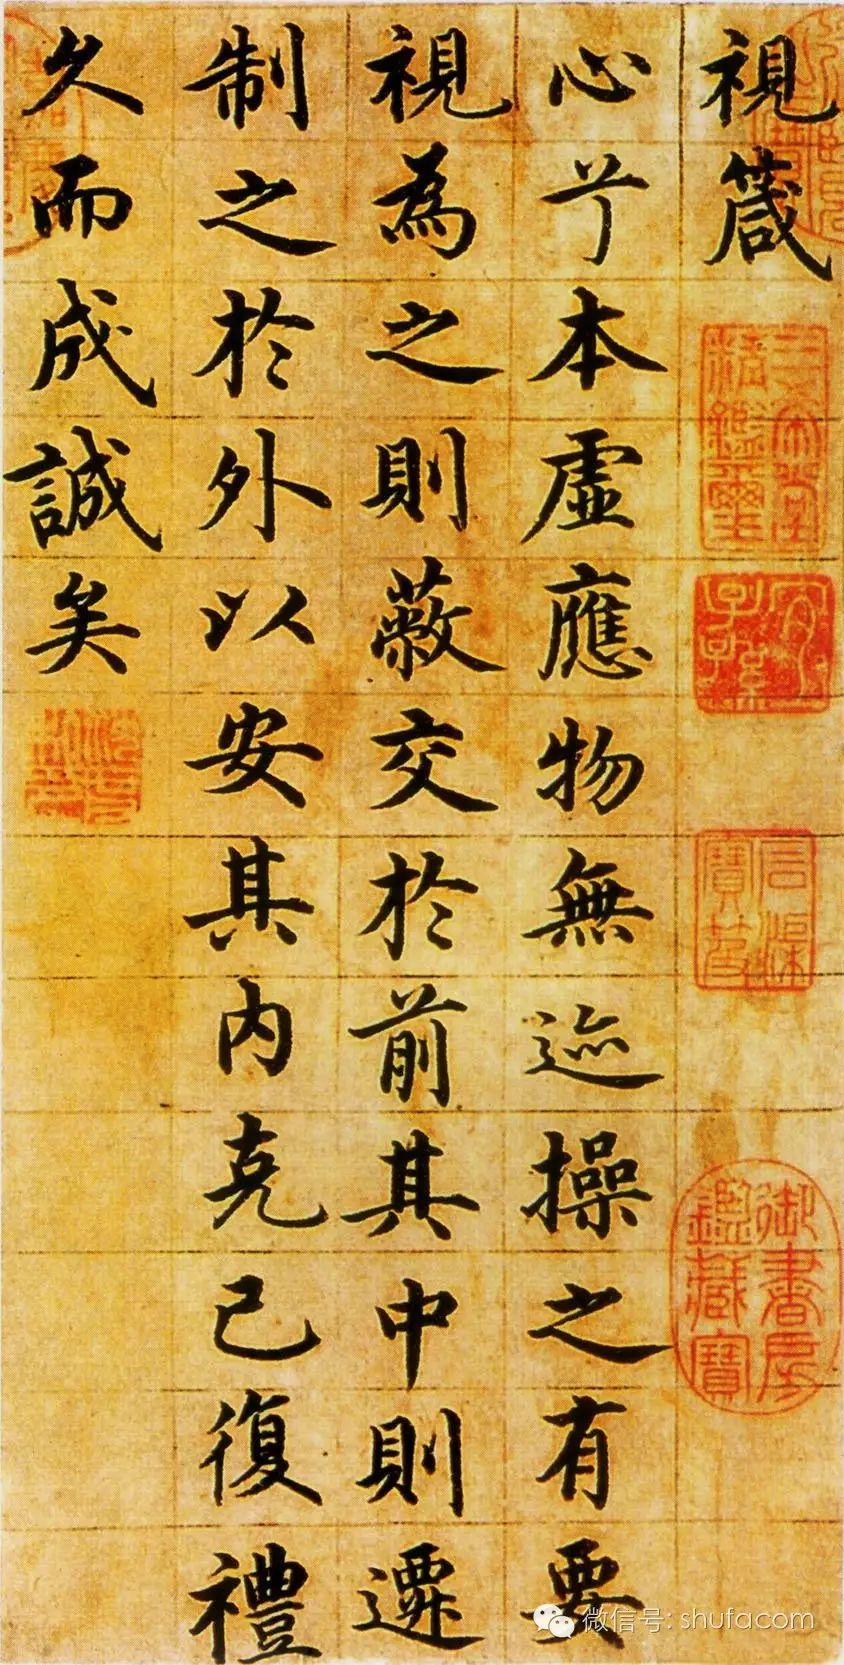 視箴
心兮本虛應物無迹操之有要
視為之則蔽交於前其中則遷
制之於外以安其內克己復禮
久而成誠矣
三希堂
精鑑璽
宜子孫
石渠
寶笈
御書房
鑑藏寶
微信号: shufacom